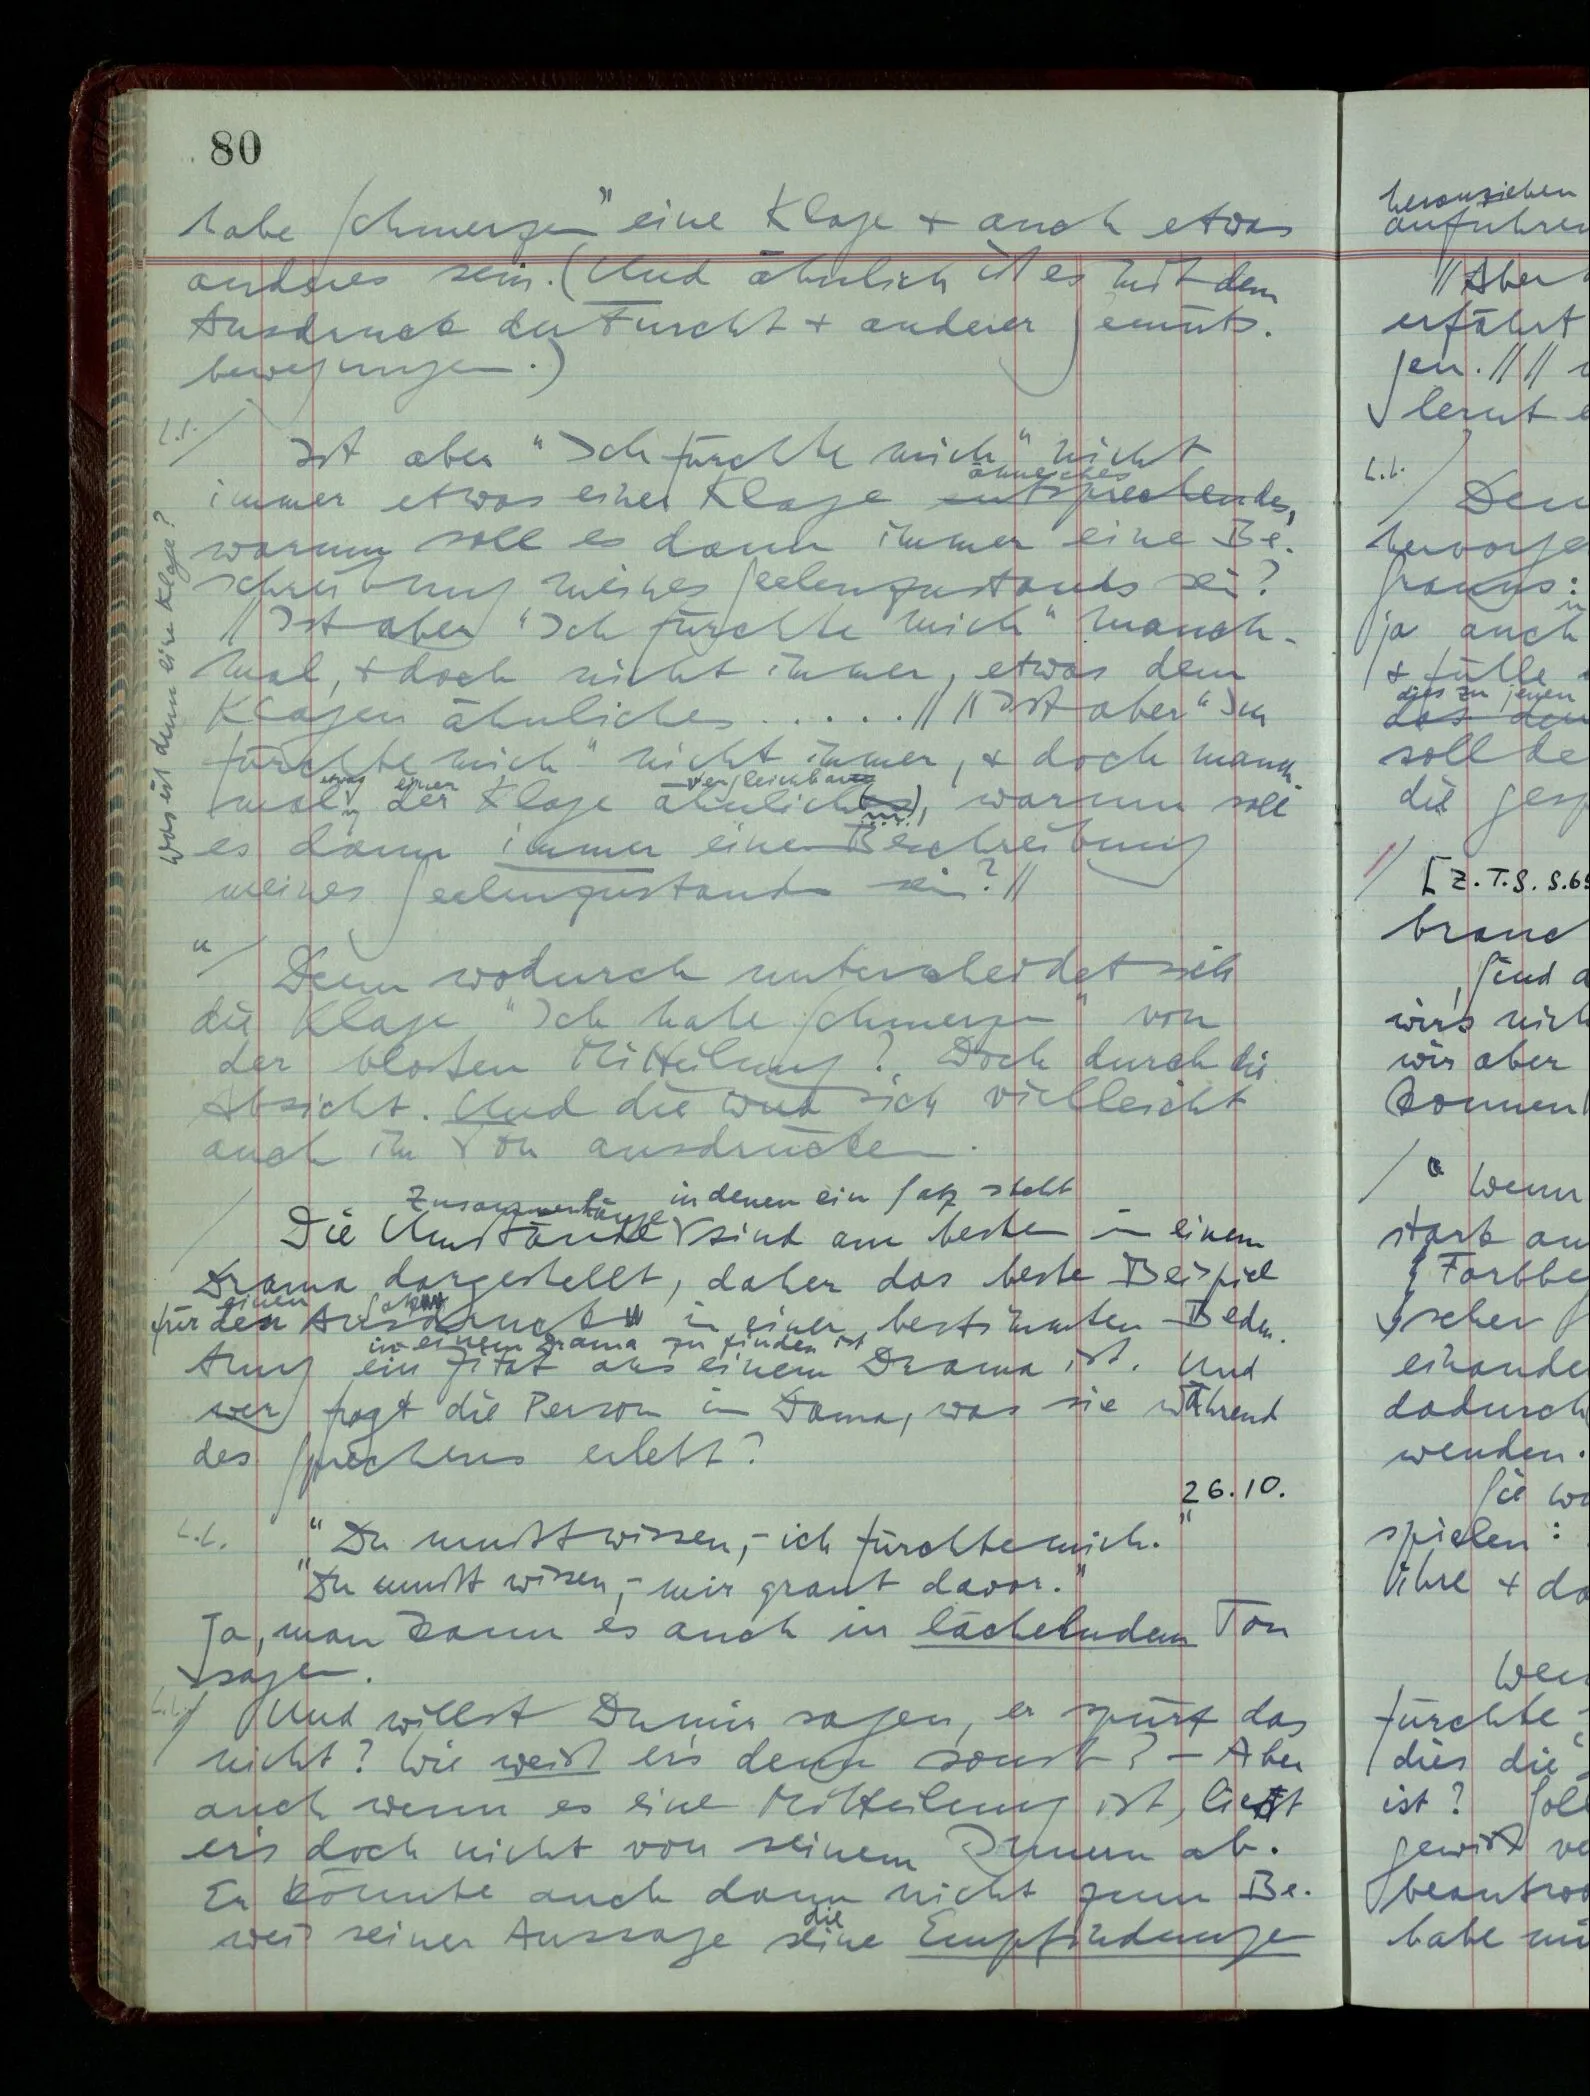 80
habe Schmerzen" eine Klage + auch etwas
anderes sein. (Und ähnlich ist es mit dem
Ausdruck der Furcht + anderer Gemüts-
bewegungen.)
Ist aber "Ich fürchte mich" nicht
ähnliches
immer etwas einer Klage entsprechendes,
warum soll es dann immer eine Be-
schreibung meines Seelenzustands sein?
// Ist aber "Ich fürchte mich" manch-
mal, + doch nicht immer, etwas dem
Klagen ähnliches . . . . . // // Ist aber "Ich
fürchte mich" nicht immer, + doch manch-
etwas einer vergleichbares
mal, der Klage ähnlich(es), warum soll
es dann immer eine Beschreibung
meines Seelenzustands sein? //
Was ist denn eine Klage?
"/ Denn wodurch unterscheidet sich
die Klage "Ich habe Schmerzen" von
der bloßen Mitteilung? Doch durch die
Absicht. Und die wird sich vielleicht
auch im Ton ausdrücken.
Zusammenhänge in denen ein Satz steht
/ Die Umstände sind am besten in einem
Drama dargestellt, daher das beste Beispiel
einen Satz
für den Ausdruck in einer bestimmten Bedeu-
in einem Drama zu finden ist
tung ein Zitat aus einem Drama ist. Und
wer fragt die Person im Dama, was sie während
des Sprechens erlebt?
26.10.
"Du mußt wissen, – ich fürchte mich."
"Du mußt wissen, – mir graut davor."
Ja, man kann es auch in lächelndem Ton
sagen.
Und willst Du mir sagen, er spürt das
nicht? Wie weiß er's denn sonst? – Aber
auch wenn es eine Mitteilung ist, liest
er's doch nicht von seinem Innern ab.
Er könnte auch dann nicht zum Be-
die
weis seiner Aussage seine Empfindungen
heranziehen
anführen
// Aber
erfährt
gen. // //
lernt
Den
hervorge
ja auch
+ fülle
dies zu jenen
soll de
die gesp
[Z.T.S. S.6
brauch
Sind
wir's nich
wir aber
kommen
/ " Wenn
stark an
Farbbe
scher
einande
dadurch
wenden.
Sie
spielen:
+ da
Wen
fürchte
dies die
ist? Soll
gewiß ve
beantwo
habe mi